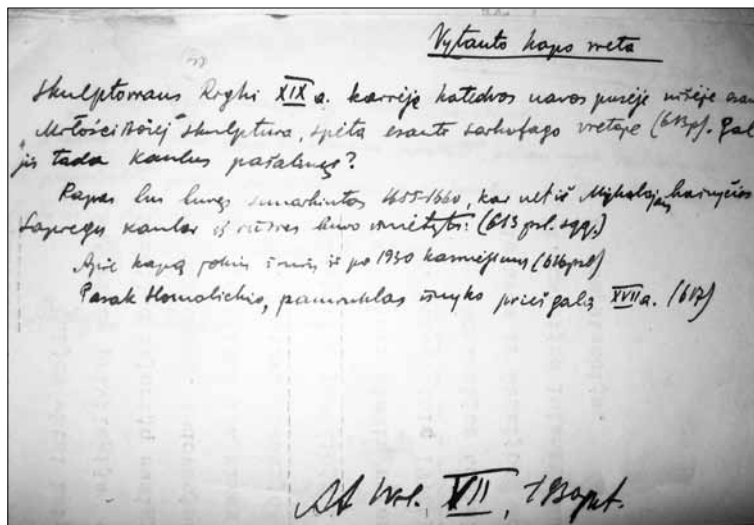 Vytauto kapo vieta
Skulptoriaus Righi XIX a. kairėje katedros navos pusėje nišėje esan
„Miłości Bożej" skulptura, spėta esante sarkofago vietoje (613 p). Gal
jis tada kaulus pašalinęs?
Kapas bus buvęs sunaikintas 1655-1660, kai net iš Mykolojaus bažnyčios
Sapiegų kaulai iš rūsies buvo išmėtyti. (613 psl. sqq.)
Apie kapą žinių po 1930 kasinėjimų (616 psl)
Pasak Homolickio, paminklas išnyko prieš galą XVII a. (617)
VII